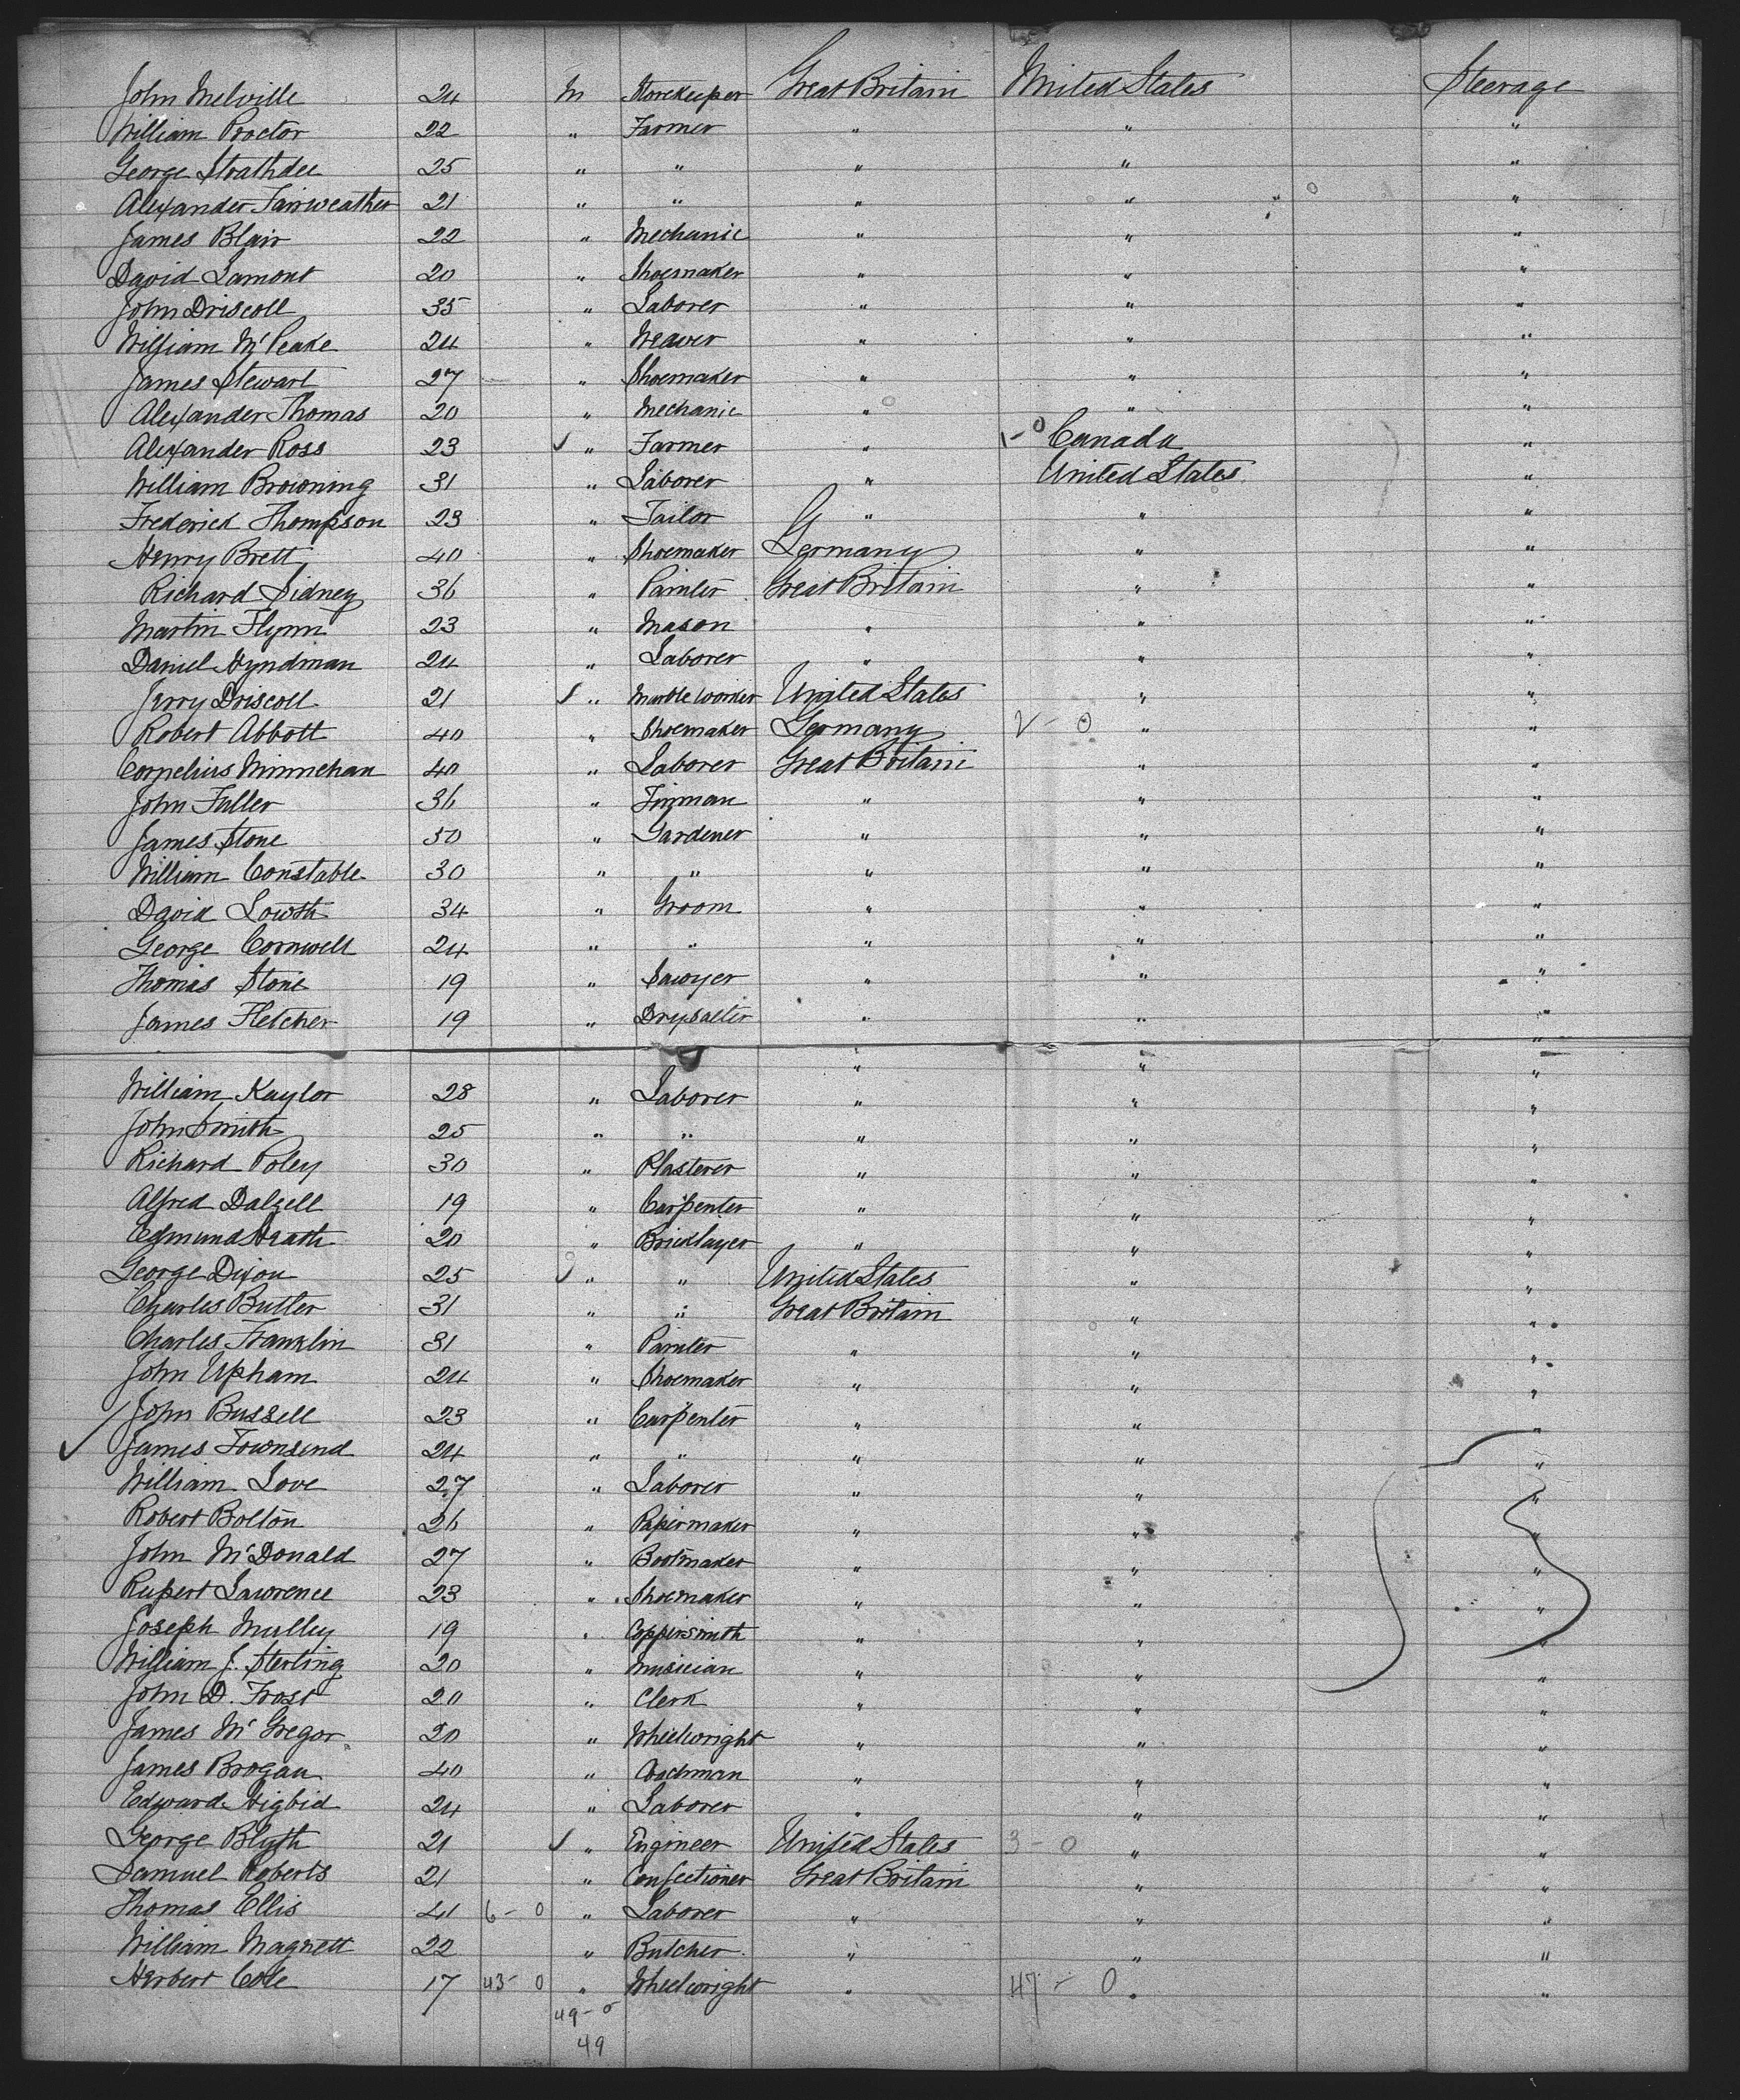 John Melville 24 M Storekeeper Great Britain United States Steerage
William Proctor 22 " Farmer " " "
George Strathdee 25 " " " " "
Alexander Fairweather 21 " " " " "
James Blair 22 " Mechanic " " "
David Lamont 20 " Shoemaker " " "
John Driscoll 35 " Laborer " " "
William McPeake 24 " Weaver " " "
James Stewart 27 " Shoemaker " " "
Alexander Thomas 20 " Mechanic " " "
Alexander Ross 23 ✓ " Farmer " 1-0 Canada "
William Browning 31 " Laborer " United States "
Frederick Thompson 23 " Tailor " " "
Henry Brett 40 " Shoemaker Germany " "
Richard Sidney 36 " Painter Great Britain " "
Martin Flynn 23 " Mason " " "
Daniel Hyndman 24 " Laborer " " "
Jerry Driscoll 21 ✓ " Marble worker United States " "
Robert Abbott 40 " Shoemaker Germany 2-0 " "
Cornelius Minnehan 40 " Laborer Great Britain " "
John Fuller 36 " " " "
James Stone 50 " Gardener " " "
William Constable 30 " " " " "
David Lowth 34 " Groom " " "
George Cornwell 24 " " " " "
Thomas Stone 19 " Sawyer " " "
James Fletcher 19 " Drysalter " " "
" " "
William Kaylor 28 " Laborer " " "
John Smith 25 " " " " "
Richard Poley 30 " Plasterer " " "
Alfred Dalzell 19 " Carpenter " " "
Edmund Heath 20 " Bricklayer " " "
George Dixon 25 ✓ " " United States " "
Charles Butler 31 " " Great Britain " "
Charles Franklin 31 " Painter " " "
John Upham 24 " Shoemaker " " "
John Bussell 23 " Carpenter " " "
✓ James Townsend 24 " " " " "
William Love 27 " Laborer " " "
Robert Bolton 26 " Papermaker " " "
John McDonald 27 " Bootmaker " " "
Rupert Lawrence 23 " Shoemaker " " "
Joseph Mulley 19 " Coppersmith " " "
William J. Sterling 20 " Musician " " "
John D. Frost 20 " Clerk " " "
James McGregor 20 " Wheelwright " " "
James Brogan 40 " Coachman " " "
Edward Higbid 24 " Laborer " " "
George Blyth 21 ✓ " Engineer United States 3-0 " "
Samuel Roberts 21 " Confectioner Great Britain " "
Thomas Ellis 41 6-0 " Laborer " " "
William Magnett 22 " Butcher " " "
Herbert Cole 17 43-0 " Wheelwright " 47-0 " "
49-0
49